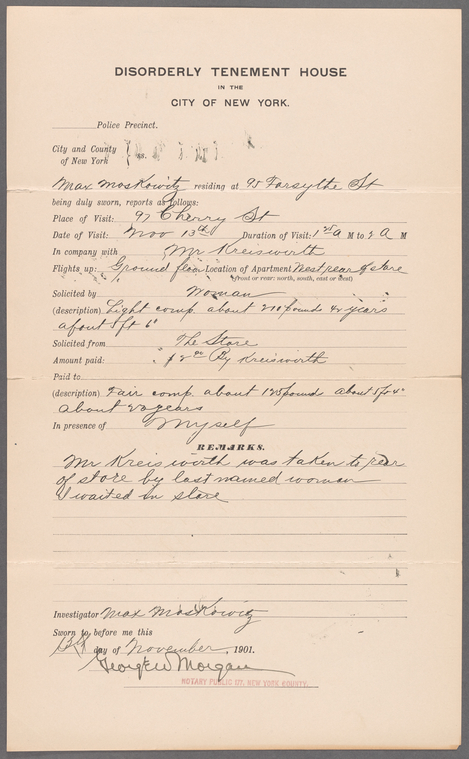 DISORDERLY TENEMENT HOUSE
IN THE
CITY OF NEW YORK.
Police Precinct.
City and County
of New York ss.
Max Moskowitz residing at 95 Forsythe St
being duly sworn, reports as follows:
Place of Visit: 97 Cherry St
Date of Visit: Nov 13th Duration of Visit: 1 A M to 2 A M
In company with Mr Kreiswirth
Flights up: Ground floor Location of Apartment West rear of store
(front or rear: north, south, east or west)
Solicited by Woman
(description) Light comp. about 210 pounds 42 years
about 5 ft 6"
Solicited from The Store
Amount paid: $2.00 By Kreiswirth
Paid to
(description) Fair comp. about 125 pound about 5 ft 4"
about 20 years
In presence of Myself
REMARKS.
Mr Kreiswirth was taken to rear
of store by last named woman
I waited in store
Investigator Max Moskowitz
Sworn to before me this
day of November, 1901.
George W Morgan
NOTARY PUBLIC NEW YORK COUNTY.